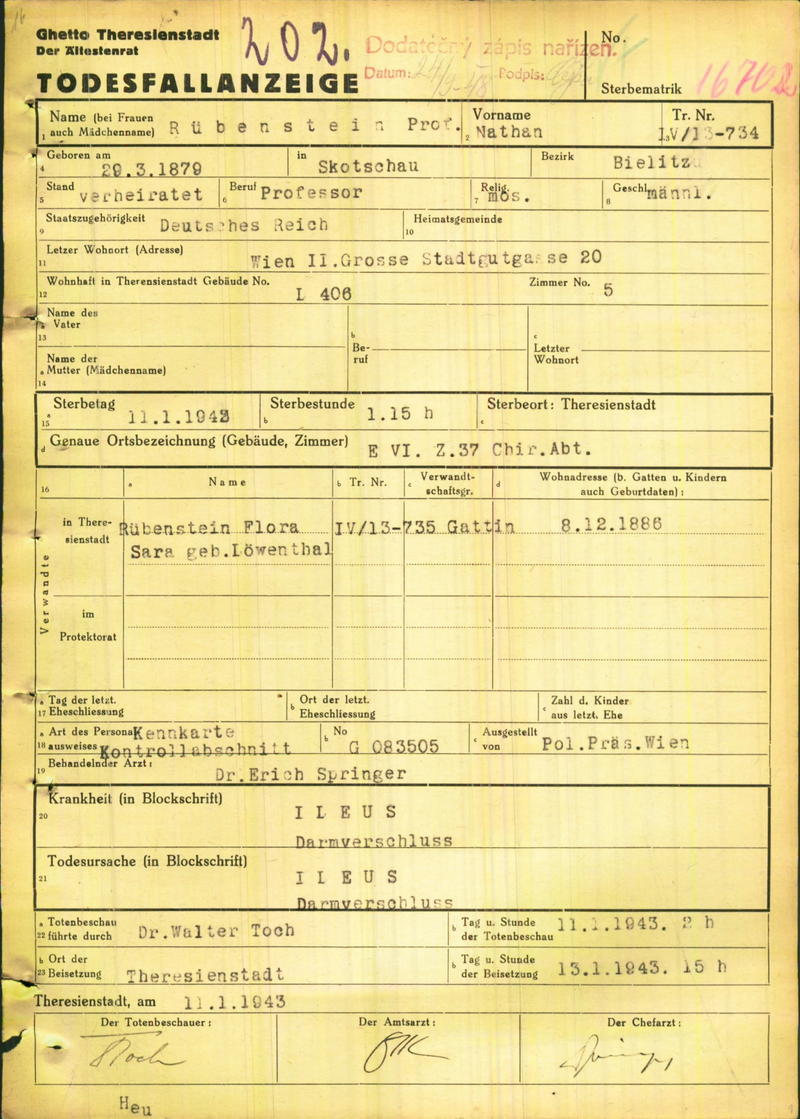 Ghetto Theresienstadt
Der Ältestenrat
202.
Dodatečný zápis nařízen.
Datum: Podpis:
No.
TODESFALLANZEIGE
Sterbematrik 16702
Name (bei Frauen
1 auch Mädchenname) Rübenstein Prof.
Vorname
2 Nathan
Tr. Nr.
3 IV/13-734
Geboren am
4 29.3.1879
in
Skotschau
Bezirk
Bielitz
Stand
5 verheiratet
Beruf
6 Professor
Relig.
7 mos.
Geschl.
8 männl.
Staatszugehörigkeit
9 Deutsches Reich
Heimatsgemeinde
10
Letzer Wohnort (Adresse)
11 Wien II.Grosse Stadtgutgasse 20
Wohnhaft in Therensienstadt Gebäude No.
12 L 406
Zimmer No. 5
Name des
a Vater
13
b
Be-
ruf
c
Letzter
Wohnort
Name der
a Mutter (Mädchenname)
14
a Sterbetag
15 11.1.1943
Sterbestunde
b 1.15 h
Sterbeort: Theresienstadt
c
d Genaue Ortsbezeichnung (Gebäude, Zimmer) E VI. Z.37 Chir.Abt.
16
a Name
b Tr. Nr.
c Verwandt-
schaftsgr.
d Wohnadresse (b. Gatten u. Kindern
auch Geburtdaten):
Verwandte
in There-
sienstadt
Rübenstein Flora IV/13-735 Gattin 8.12.1886
Sara geb.Löwenthal
im
Protektorat
a Tag der letzt.
17 Eheschliessung
b Ort der letzt.
Eheschliessung
c Zahl d. Kinder
aus letzt. Ehe
a Art des Persona Kennkarte
18 ausweises Kontrollabschnitt
b No
G 083505
c Ausgestellt
von Pol.Präs.Wien
Behandelnder Arzt:
19 Dr.Erich Springer
Krankheit (in Blockschrift)
20 ILEUS
Darmverschluss
Todesursache (in Blockschrift)
21 ILEUS
Darmverschluss
a Totenbeschau
22 führte durch Dr.Walter Toch
b Tag u. Stunde
der Totenbeschau 11.1.1943. 2 h
b Ort der
23 Beisetzung Theresienstadt
b Tag u. Stunde
der Beisetzung 13.1.1943. 15 h
Theresienstadt, am 11.1.1943
Der Totenbeschauer:
Der Amtsarzt:
Der Chefarzt:
Toch
Heu